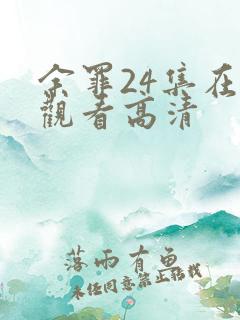 余罪24集在
觀看高清
落雨有魚
未经同意禁止搬我